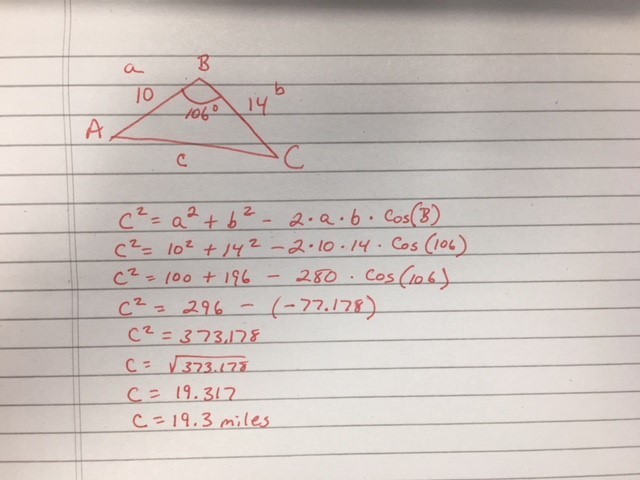 a
B
10
106°
14
b
A
c
C
c² = a² + b² - 2·a·b·Cos(B)
c² = 10² + 14² - 2·10·14·Cos(106)
c² = 100 + 196 - 280·Cos(106)
c² = 296 - (-77.178)
c² = 373.178
c = √373.178
c = 19.317
c = 19.3 miles